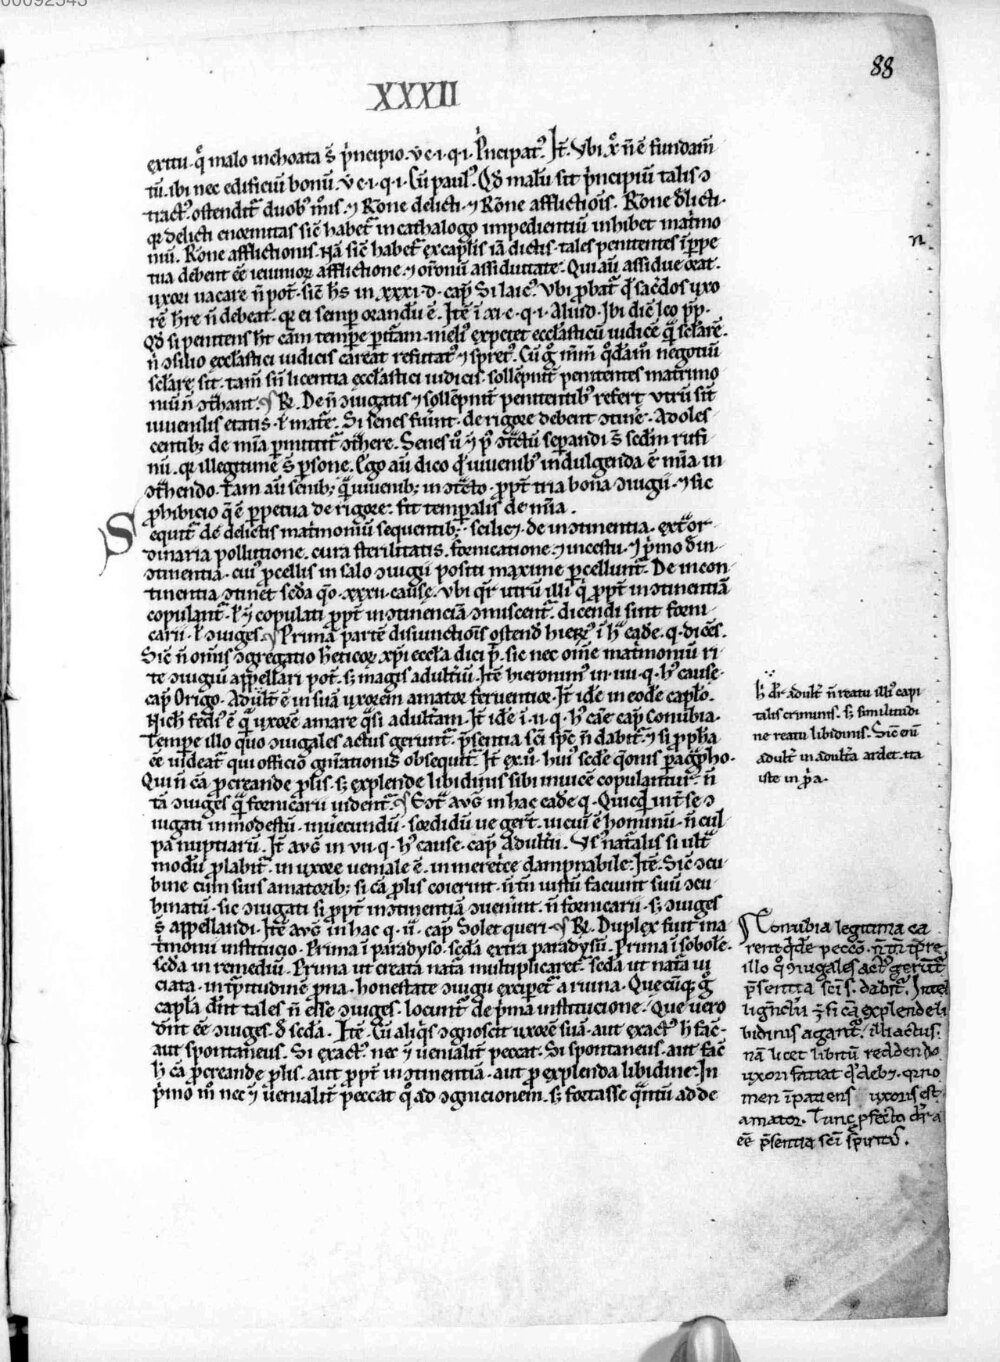 88
XXXII
exitu. qͦ malo inchoata s̄ p̉ncipio. v̄ c. i. q. i. P̉ncipatꝰ. It̄. Vbi xͦ n̄ ē fundam̄
tū. ibi nec edificiū bonū. v̄ c. i. q. i. Cū paulꝰ. Qd̄ malū sit p̉ncipiū talis ↄ
tractꝰ ostendit᷑ duobꝰ m̊is. ⁊ Rōne delicti. ⁊ Rōne afflictiōis. Rōne d̄licti.
qꝛ delicti enormitas sic̄ habet᷑ in cathalogo impedientiū inhibet mat̉mo
niū. Rōne afflictionis. nā sic̄ habet᷑ ex cap̄lis iā dictis. tales penitentes ī ꝑpe
tua debent eē ieiunioꝝ afflictione. ⁊ or̄onū assiduitate. Qui aū assidue orat.
uxori uacare n̄ pot̄. sic̄ hꝰ in xxxi. d. cap̄. Si laicꝰ. Vbi ꝓbat᷑ qd̄ sac̄dos uxo
rē h̄re n̄ debeat. qꝛ ei semꝑ orandū ē. Itē ī xi. c. q. i. Aliud. Ibi dic̄ leo pp̄.
Qd̄ si penitens h̄t cām tempe ꝑt̄am. meliꝰ expetet eccl̄asticū iudicē qͣ sclare.
n̄ ↄsilio eccl̄astici iudicis careat
sclare sit. tam̄ sn̄ licentia eccl̄astici iudicis. sollēpnit̄ penitentes mat̉mo
niū n̄ ↄt͛hant. ¶ R̄. De n̄ ↄiugatis ⁊ sollēpnit̄ penitentibꝰ refert utrū sint
iuuenilis etatis. ł mat᷑e. Si senes fūint. de rigore debent ↄtin̄e. Adoles
centibꝫ de mīa ꝑmittit᷑ ↄt͛here. Senes ū ⁊ pꝰ ↄt͛ctū separandi s̄ scd̄m rufi
nū. qꝛ illegitime s̄ ꝑsone. Ego aū dico qd̄ iuuenibꝰ indulgenda ē mīa in
ↄt͛hendo. tam aū senibꝫ qͣ iuuenibꝫ in ↄt͛cto. ꝓpt̄ tria bona ↄiugii. ⁊ sic
ꝓhibicio q̄ ē ꝑpetua de rigore. fit temꝑalis de mīa.
Sequit᷑ de delictis mat̉moniū sequentibꝫ. scilicꝫ. de inↄtinentia. ext͛or
dinaria pollutione. cura sterilitatis. fornicatione. ⁊ incestu. ⁊ p̉mo d̄ in
ↄtinentia. cuiꝰ ꝓcellis in salo ↄiugii positi maxime ꝑcellunt᷑. De incon
tinentia ↄtinet scd̄a qͦ. xxxii. cause. Vbi qr̄ utrū illi q̉ ꝓpt̄ inↄtinentiā
copulant᷑. ł ⁊ copulati ꝓpt̄ inↄtinenciā ↄmiscent᷑. dicendi sint forni
carii. ł ↄiuges. ¶ Primā partē disiunctiōis ostend̄ hieꝝꝰ ī hͣ eadē. q. dicēs.
Sic̄ n̄ om̄is ↄgregatio h̄eticoꝝ xp̄i eccl̄a dici pͦ. sic nec om̄e mat̉moniū ri
te ↄiugiū appellari pot̄. sꝫ magis adult̉iū. Itē hieronimꝰ in iiii. q. hꝰ cause.
cap̄. Origo. Adult̄ ē in suā uxorem amator feruentior. It̄ idē in eodē cap̄lo.
Nich̄ fediꝰ ē qͣ uxorē amare qͣsi adult᷑am. It̄ idē ī. ii. q. hꝰ cāe cap̄. Conubia.
Tempe illo quo ↄiugales actus gerunt᷑. p̄sentia sc̄i sp̄c n̄ dabit᷑. ⁊ si ꝓpha
eē uideat᷑ qui officiō gn̄ationis obsequit᷑. It̄ ex. ii. huiꝰ scd̄e qōnis paͣgͣpho.
Qui n̄ cā ꝓcreande ꝓlis. sꝫ explende libidinis sibi inuicē copulantur. n̄
tā ↄiuges qͣ fornicarii uident᷑. ¶ Cōt͛ avg̉ in hac eadē q. Quicqd̄ int̄ se ↄ
iugati inmodestū. inuerecundū. sordidū ue gert̄. uiciū ē hominū. n̄ cul
pa nuptiarū. It̄ avg̉ in vii. q. hꝰ cause. cap̄. Adult̉ii. Vsꝰ nat᷑alis si ult͛
modū ꝓlabit᷑. in uxore ueniale ē. in meret̉ce dampnabile. Itē. Sic̄ ↄcu
bine cum suis amatoribꝫ si cā ꝓlis coierint. n̄ tn̄ iustū faciunt suū ↄcu
binatū. sic ↄiugati si ꝓpt̄ inↄtinentiā ↄuenīnt. n̄ fornicarii. sꝫ ↄiuges
s̄ appellandi. Itē avg̉ in hac q. ii. cap̄. Solet queri. ¶ R̄. Duplex fuit ma
t̉monii institucio. Prima ī paradyso. scd̄a extra paradysū. Prima ī sobolē.
scd̄a in remediū. Prima ut creata nat᷑a multiplicaret᷑. scd̄a ut nat᷑a ui
ciata. in t᷑pitudinē ꝓna. honestate ↄiugii exciperet᷑ a ruina. Quecūqꝫ gͦ
cap̄la dn̄t tales n̄ esse ↄiuges. locunt᷑ de p̉ma institucione. Que uero
dn̄t eē ↄiuges. d̄ scd̄a. Itē. Cū aliqͥs ↄgnoscit uxorē suā. aut exactꝰ h̄ fac̄.
aut spontaneus. Si exactꝰ. nec ⁊ uenialit̄ peccat. Si spontaneus. aut fac̄
h̄ cā ꝓcreande ꝓlis. aut ꝓpt̄ inↄtinentiā. aut ꝓ explenda libidine. In
p̉mo m̊ nec ⁊ uenialit̄ peccat qͦ ad ↄgnicionem. sꝫ fortasse qͣntū ad de
n
h̉ dr̄ adult̄ n̄ reatu illiꝰ capi
talis criminis. sꝫ similitudi
ne reatu libidinis. Sic̄ eni
adult̄ in adult᷑a ardet. ita
iste in ꝓp̉a.
Conubia legitima ca
rent qͥdē pecco. n̄ tn̄ tp̄re
illo qͦ ↄiugales actꝰ gerunt᷑
p̄sentia sc̄i s̄. dabit᷑. Intel
ligēdū ē si cā explende li
bidinis agant᷑. illi actus.
nā licet libitū reddendo
uxori faciat qd̄ debꝫ. qͦ no
men īpatiens uxoris est
amator. Tunc ꝓfecto dr̄ a
eē p̄sentia sc̄i spiritꝰ.